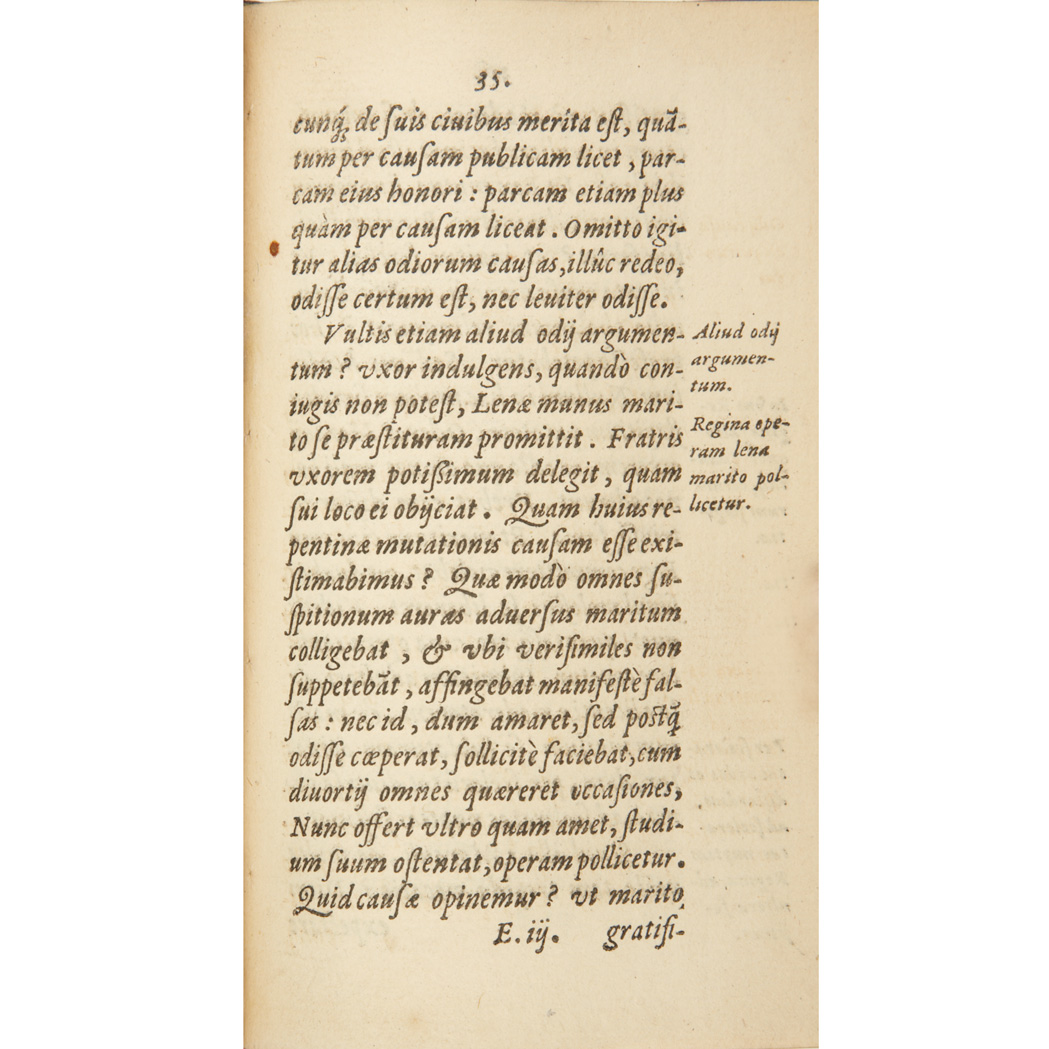 35.
cunq́; de ſuis ciuibus merita eſt, quā-
tum per cauſam publicam licet, par-
cam eius honori : parcam etiam plus
quàm per cauſam liceat. Omitto igi-
tur alias odiorum cauſas, illûc redeo,
odiſſe certum eſt, nec leuiter odiſſe.
Vultis etiam aliud odij argumen-
tum ? vxor indulgens, quandò con-
iugis non poteſt, Lenæ munus mari-
to ſe præſtituram promittit. Fratris
vxorem potißimum delegit, quam
ſui loco ei obijciat. Quam huius re-
pentinæ mutationis cauſam eſſe exi-
ſtimabimus ? Quæ modò omnes ſu-
ſpitionum auras aduerſus maritum
colligebat , & vbi veriſimiles non
ſuppetebāt, affingebat manifeſtè fal-
ſas : nec id, dum amaret, ſed poſtq̄
odiſſe cœperat, ſollicitè faciebat, cum
diuortij omnes quæreret occaſiones,
Nunc offert vltro quam amet, ſtudi-
um ſuum oſtentat, operam pollicetur.
Quid cauſæ opinemur ? vt marito
E. iij. gratifi-
Aliud odij
argumen-
tum.
Regina ope-
ram lena
marito pol-
licetur.